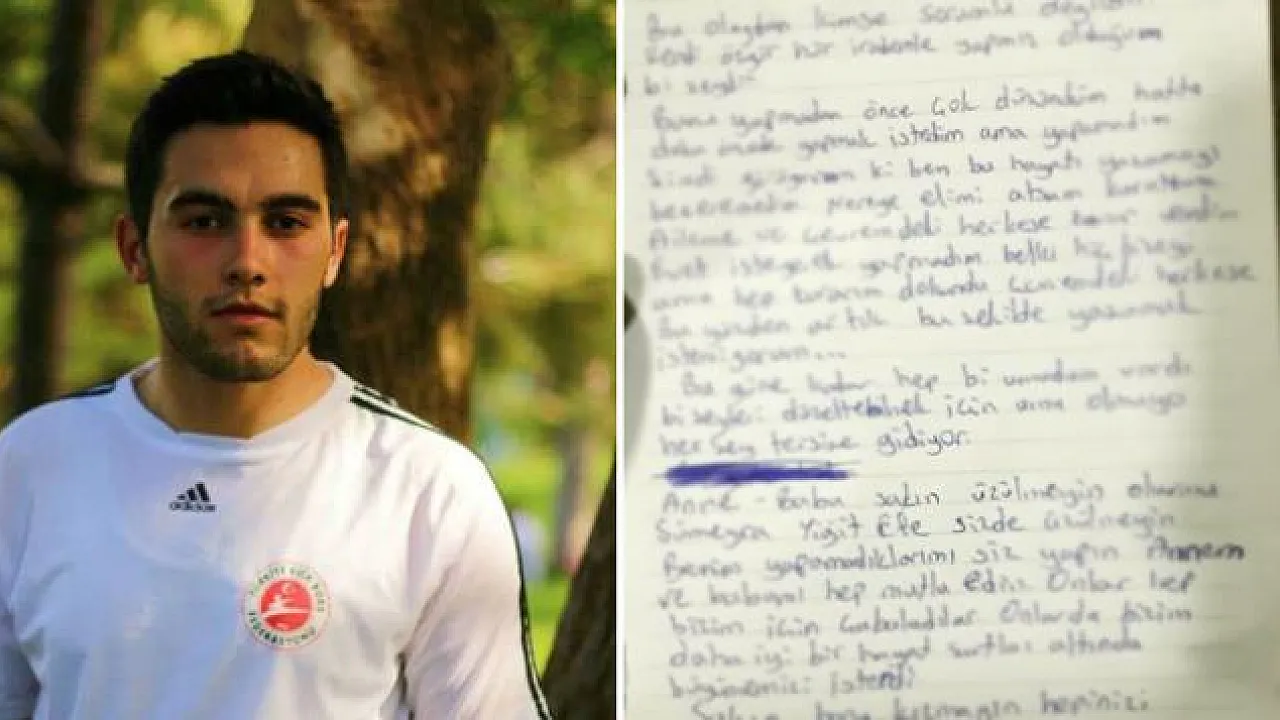 adidas
Bu olaydan kimse sorumlu değildir
Kendi özgür hür irademle yapmış olduğum
bi şeydi
Bunu yapmadan önce çok düşündüm hatta
daha önce yapmak istedim ama yapamadım
ki ben bu hayatı yaşamayı
beceremedim nereye elimi atsam kuruttum
Aileme ve çevremdeki herkese zarar verdim
Evet isteyerek yapmadım belki hiç bişeyi
ama hep zararım dokundu çevremdeki herkese
Bu yüzden artık bu şekilde yaşamak
istemiyorum...
Bu güne kadar hep bi umudum vardı
bişeyleri düzeltebilmek için ama olmuyo
herşey tersine gidiyor.
Anne - Baba sakın üzülmeyin
Sümeyra Yiğit Efe sizde üzülmeyin
Benim yapamadıklarımı siz yapın Annem
ve babamı hep mutlu edin Onlar hep
bizim için çabaladılar Onlarda bizim
daha iyi bir hayat şartları altında
büyümemizi isterdi
Sakın bana kızmayın hepinizi